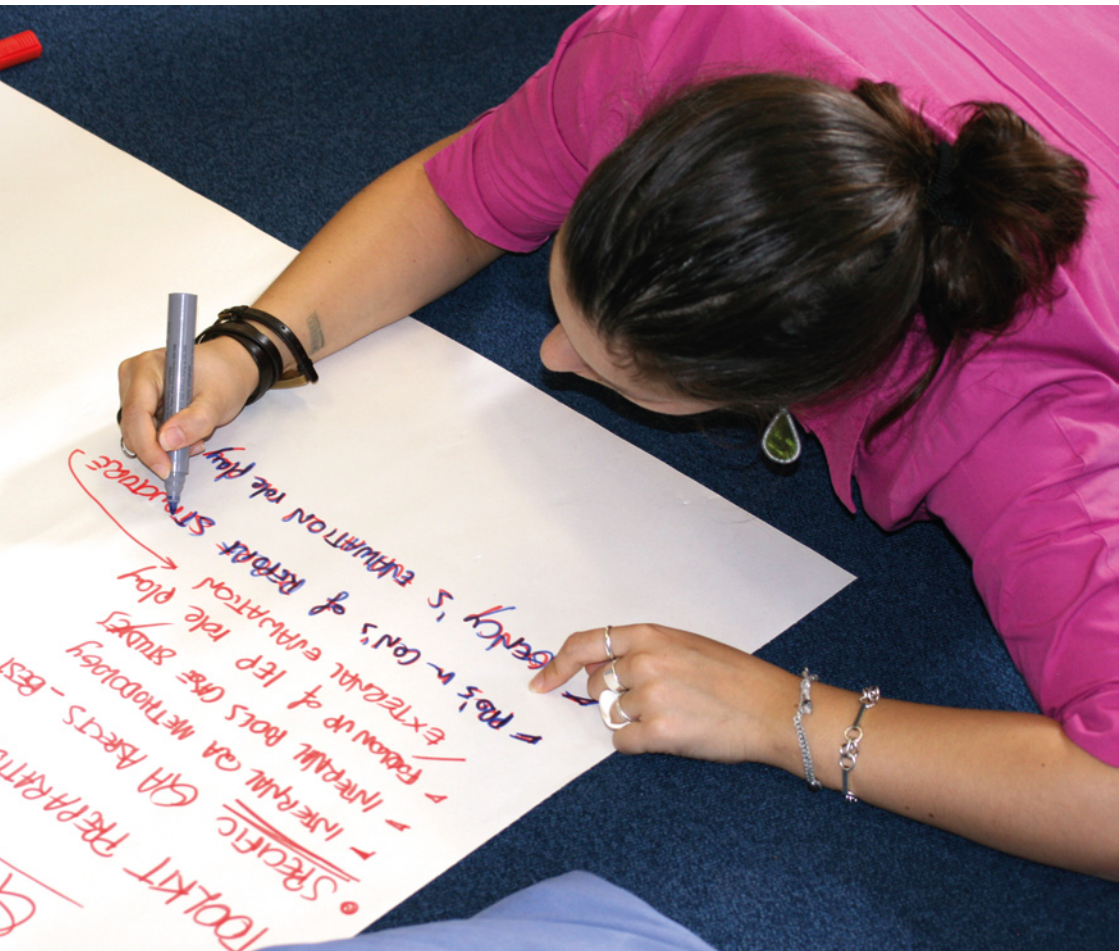 TOOLKIT PREPARATI
• SPECIFIC QA ASPECTS - BEST
- INTERNAL QA METHODOLOGY
- INTERNAL CASE STUDIES
FOLLOW UP of IEP role play
EXTERNAL EVALUATION
- PRO's n CON's of REPORT STRUCTURE
- AGENCY'S EVALUATION role play